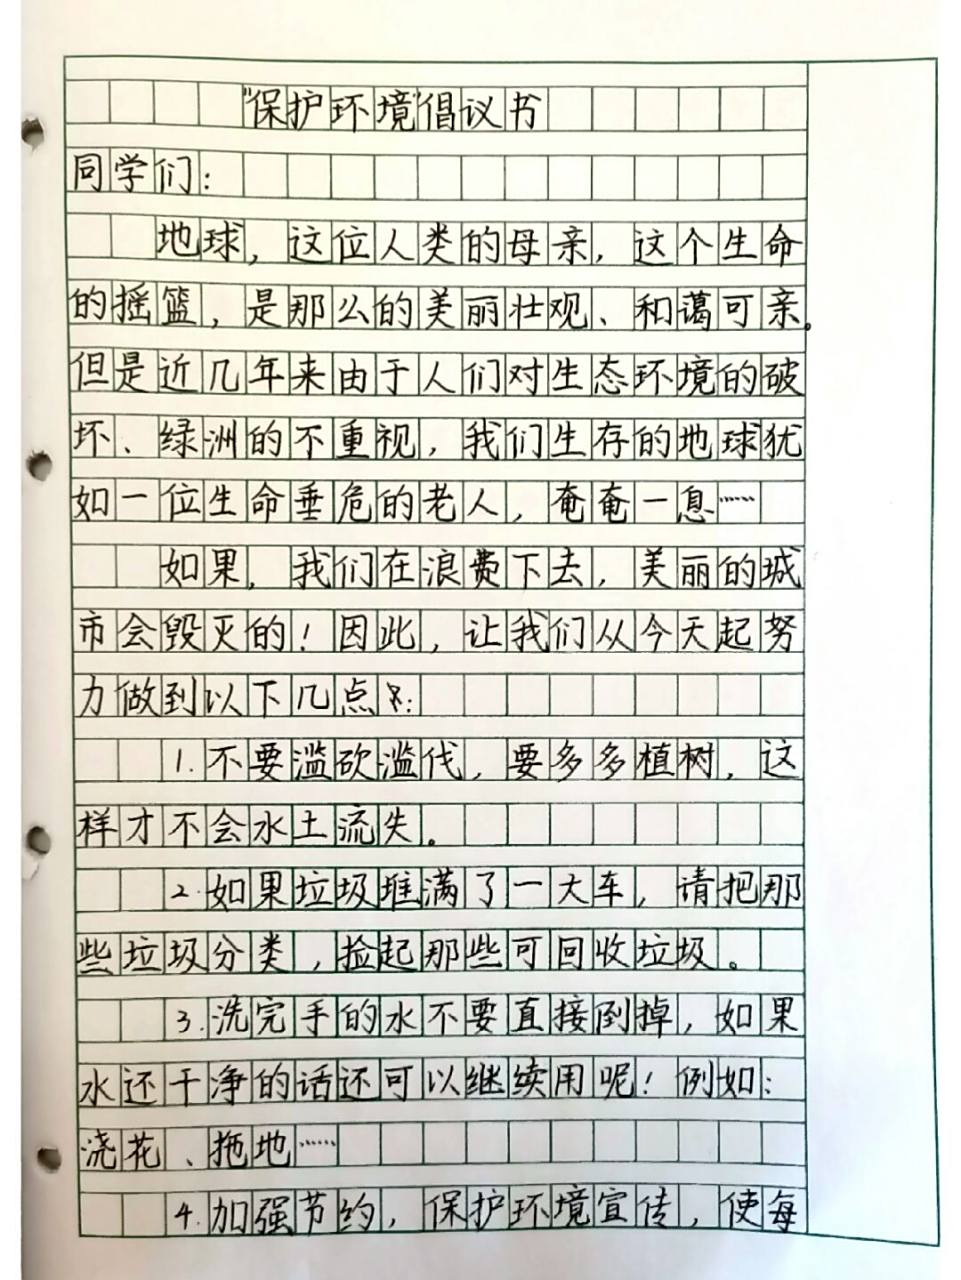 "保护环境"倡议书
同学们：
地球，这位人类的母亲，这个生命
的摇篮，是那么的美丽壮观、和蔼可亲。
但是近几年来由于人们对生态环境的破
坏、绿洲的不重视，我们生存的地球犹
如一位生命垂危的老人，奄奄一息……
如果，我们在浪费下去，美丽的城
市会毁灭的！因此，让我们从今天起努
力做到以下几点：
1.不要滥砍滥伐，要多多植树，这
样才不会水土流失。
2.如果垃圾堆满了一大车，请把那
些垃圾分类，捡起那些可回收垃圾。
3.洗完手的水不要直接倒掉，如果
水还干净的话还可以继续用呢！例如：
浇花、拖地……
4.加强节约，保护环境宣传，使每